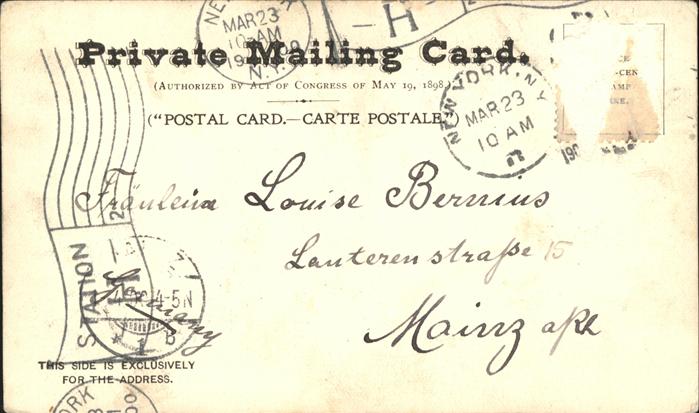 NEW YORK
MAR 23
10 AM
N.Y.
H
Private Mailing Card.
(AUTHORIZED BY ACT OF CONGRESS OF MAY 19, 1898.)
("POSTAL CARD.—CARTE POSTALE.")
NEW YORK, N.Y.
MAR 23
10 AM
Fräulein Louise Bernius
Lauterenstraße 15
Mainz a/Rh
Germany
STATION
H
4-5N
THIS SIDE IS EXCLUSIVELY
FOR THE ADDRESS.